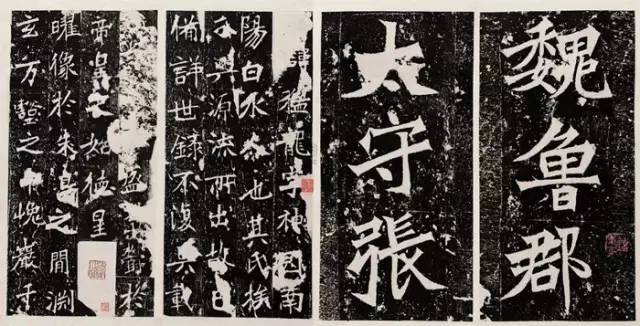 魏魯郡
太守張
諱猛龍字神囧南
陽白水人也其氏族
興源流所出故已
備詳世錄不復具載
盛鬱於
帝皇之始德星
曜像於朱鳥之間淵
玄万壑之中巘巖千